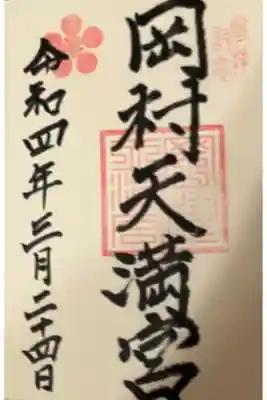 岡村天満宮
令和四年三月二十四日